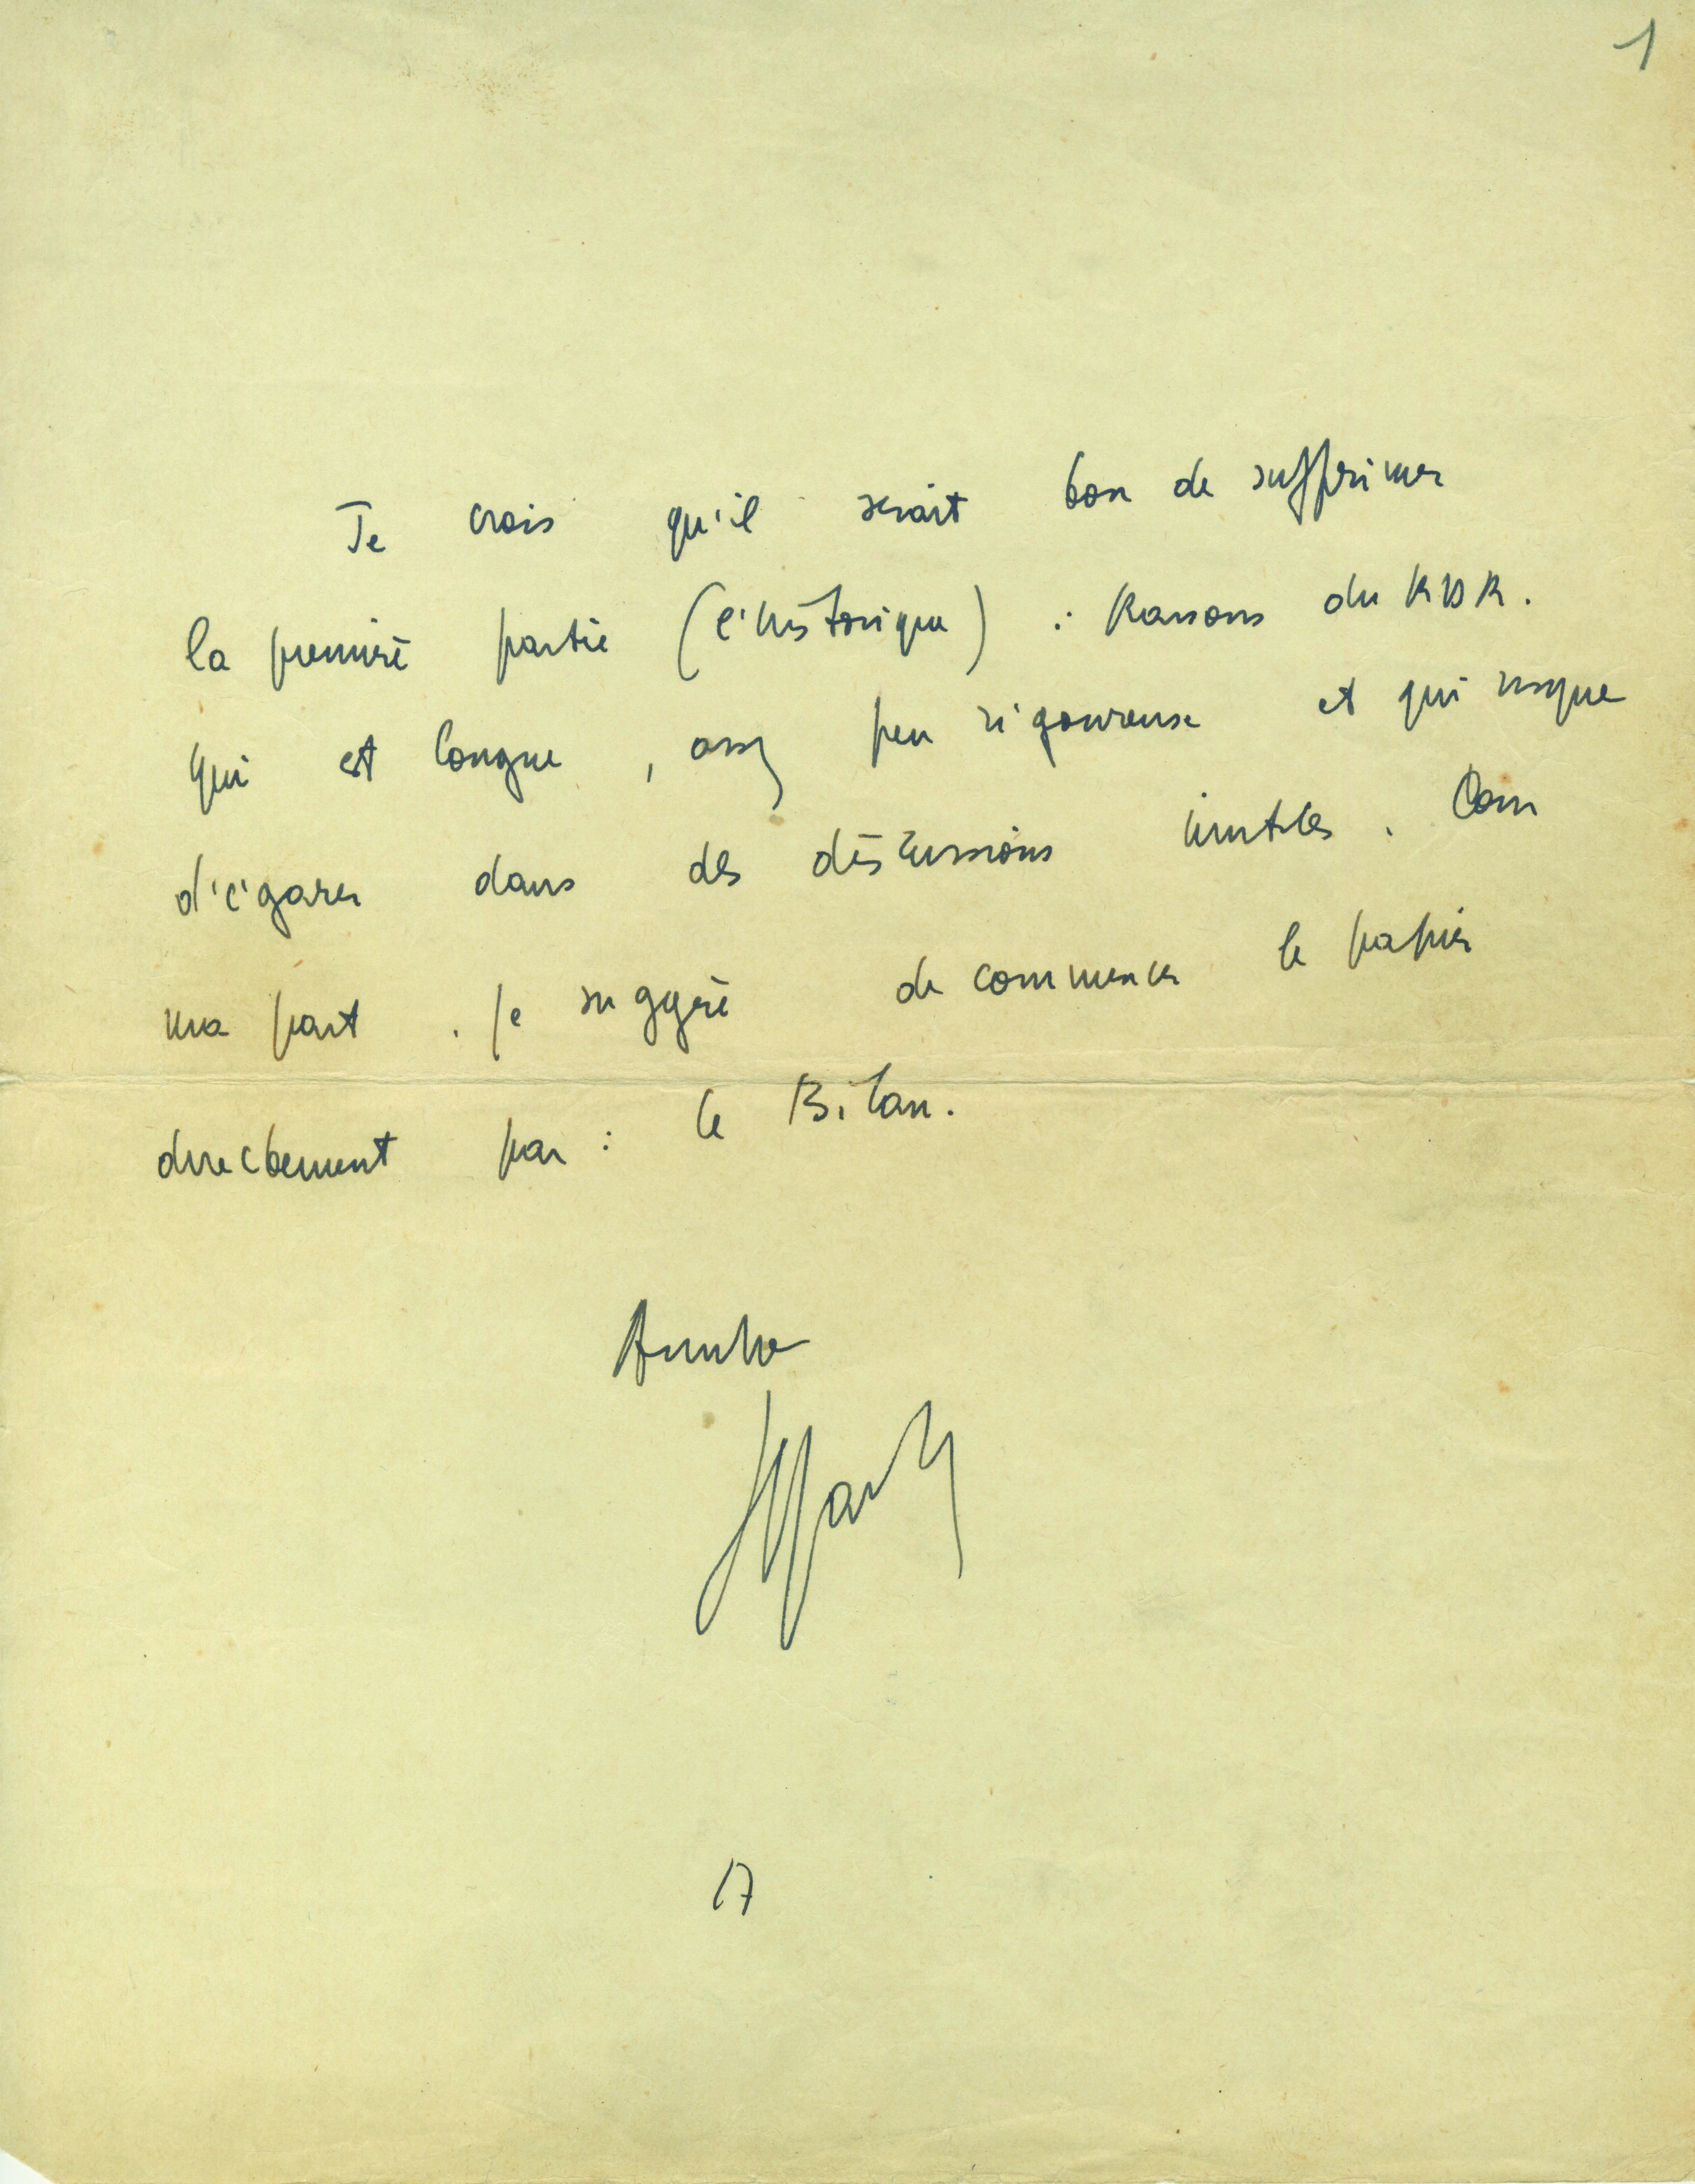 1
Je crois qu'il serait bon de supprimer
la première partie (l'historique) : Raisons du RDR.
qui est longue, assez peu rigoureuse et qui risque
d'égarer dans des discussions inutiles. Pour
ma part, je suggère de commencer le papier
directement par : le Bilan.
17